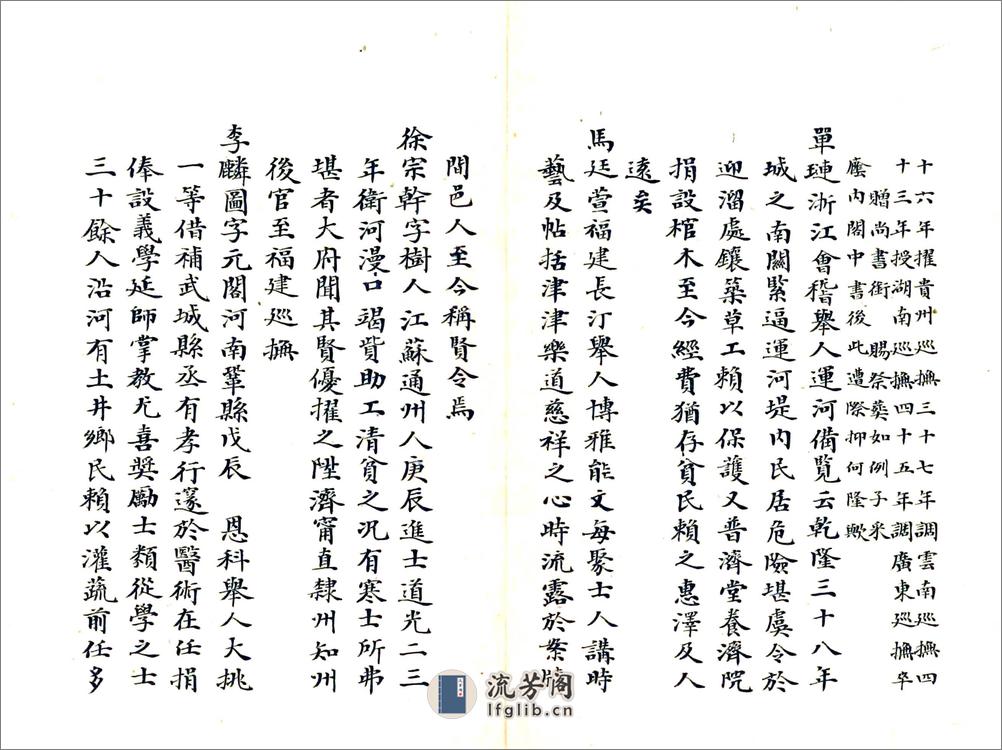 十六年擢貴州巡撫三十七年調雲南巡撫四
十三年授湖南巡撫四十五年調廣東巡撫卒
贈尚書銜賜祭葬如例子釆
麐內閣中書後此遭際抑何隆歟
單璉浙江會稽舉人運河備覽云乾隆三十八年
城之南關緊逼運河堤內民居危險堪虞令於
迎溜處鑲築草工賴以保護又普濟堂養濟院
捐設棺木至今經費猶存貧民賴之惠澤及人
遠矣
馬廷萱福建長汀舉人博雅能文每聚士人講時
藝及帖括津津樂道慈祥之心時流露於案牘
間邑人至今稱賢令焉
徐宗幹字樹人江蘇通州人庚辰進士道光二三
年衛河漫口竭貲助工清貧之況有寒士所弗
堪者大府聞其賢優擢之陞濟甯直隸州知州
後官至福建巡撫
李麟圖字元閣河南鞏縣戊辰 恩科舉人大挑
一等借補武城縣丞有孝行邃於醫術在任捐
俸設義學延師掌教尤喜獎勵士類從學之士
三十餘人沿河有土井鄉民賴以灌蔬前任多
流芳閣
lfglib.cn